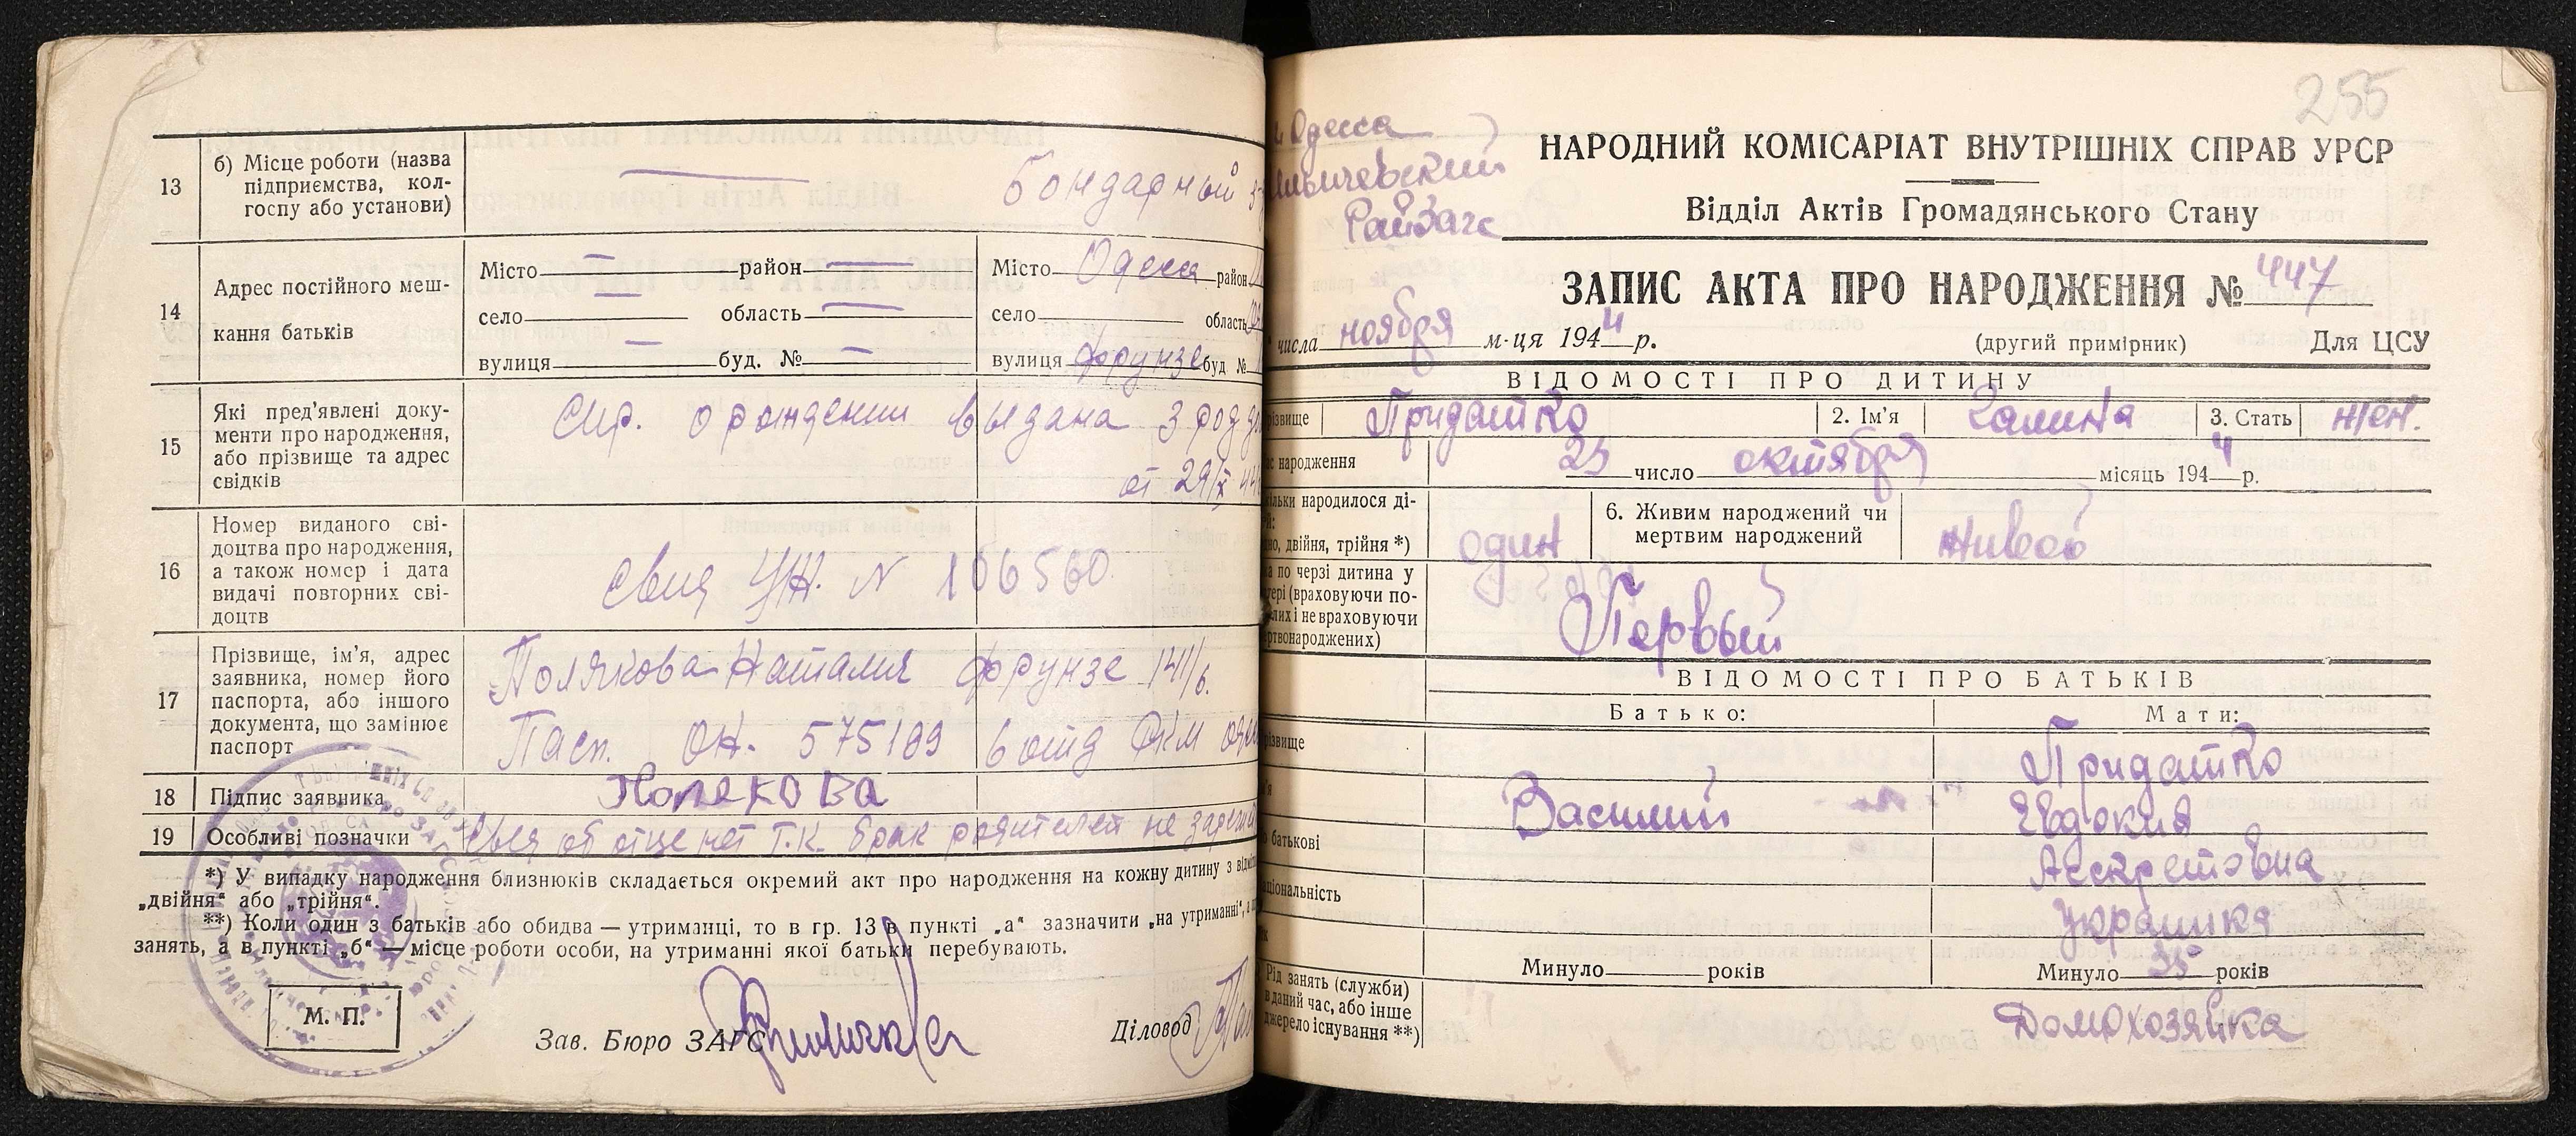 13
б) Місце роботи (назва
підприємства, кол-
госпу або установи)
—
Бондарный
14
Адрес постійного меш-
кання батьків
Місто — район —
село — область —
вулиця — буд. № —
Місто Одесса район
село область
вулиця Фрунзе буд №
15
Які пред'явлені доку-
менти про народження,
або прізвище та адрес
свідків
Спр. о рождении выдана 3 род
от 29/X 44
16
Номер виданого сві-
доцтва про народження,
а також номер і дата
видачі повторних сві-
доцтв
УЖ. N 106560
17
Прізвище, ім'я, адрес
заявника, номер його
паспорта, або іншого
документа, що замінює
паспорт
Полякова Наталия Фрунзе 141/6.
Пасп. ОН. 575199 6 отд РКМ
18
Підпис заявника
19
Особливі позначки
об отце нет т.к. брак родителей не
*) У випадку народження близнюків складається окремий акт про народження на кожну дитину з
„двійня“ або „трійня“.
**) Коли один з батьків або обидва — утриманці, то в гр. 13 в пункті „а“ зазначити „на утриманні“,
занять, а в пункті „б“ — місце роботи особи, на утриманні якої батьки перебувають.
М. П.
Зав. Бюро ЗАГС
Діловод
255
Одесса
Райзагс
НАРОДНИЙ КОМІСАРІАТ ВНУТРІШНІХ СПРАВ УРСР
Відділ Актів Громадянського Стану
ЗАПИС АКТА ПРО НАРОДЖЕННЯ № 447
числа ноября м-ця 1944 р.
(другий примірник)
Для ЦСУ
ВІДОМОСТІ ПРО ДИТИНУ
Придатко
2. Ім'я
Галина
3. Стать
жен.
народження
число октября місяць 1944 р.
народилося ді-
двійня, трійня *)
один
6. Живим народжений чи
мертвим народжений
живой
по черзі дитина у
(враховуючи по-
і не враховуючи
Первый
ВІДОМОСТІ ПРО БАТЬКІВ
Батько:
Мати:
Придатко
Василий
Евдокия
батькові
украинка
Минуло років
Минуло 35 років
Рід занять (служби)
в даний час, або інше
джерело існування **)
Домохозяйка